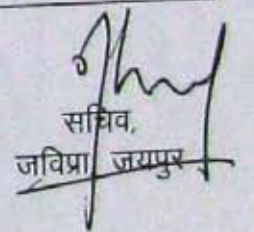 सचिव,
जविप्रा जयपुर